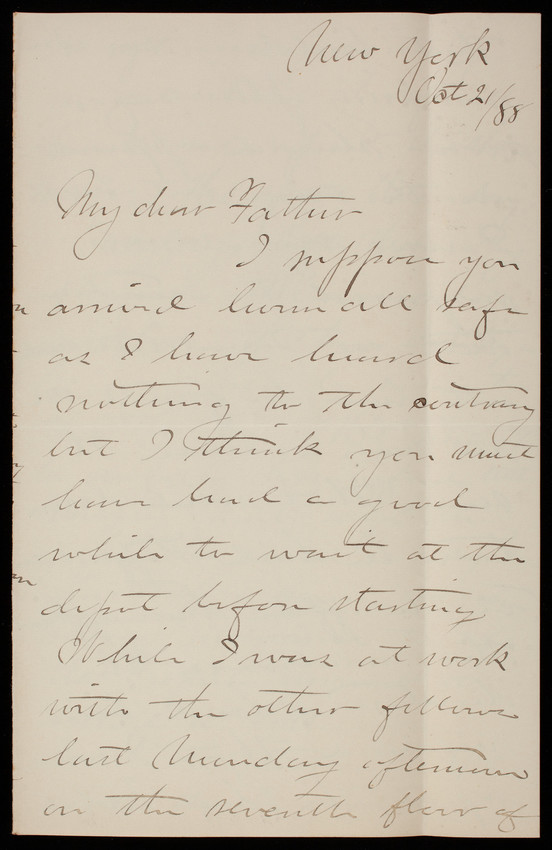 New York
Oct 21/88
My dear Father
I suppose you
arrived home all safe
as I have heard
nothing to the contrary
but I think you must
have had a good
while to wait at the
depot before starting
While I was at work
with the other fellows
last Monday afternoon
on the seventh floor of